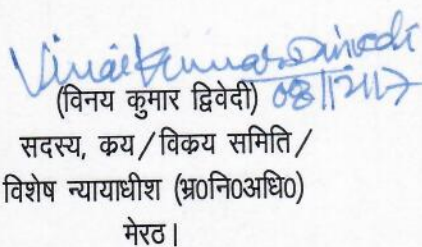 Vinai Kumar Dwivedi
08/12/17
(विनय कुमार द्विवेदी)
सदस्य, कय/विकय समिति/
विशेष न्यायाधीश (भ्र0नि0अधि0)
मेरठ।